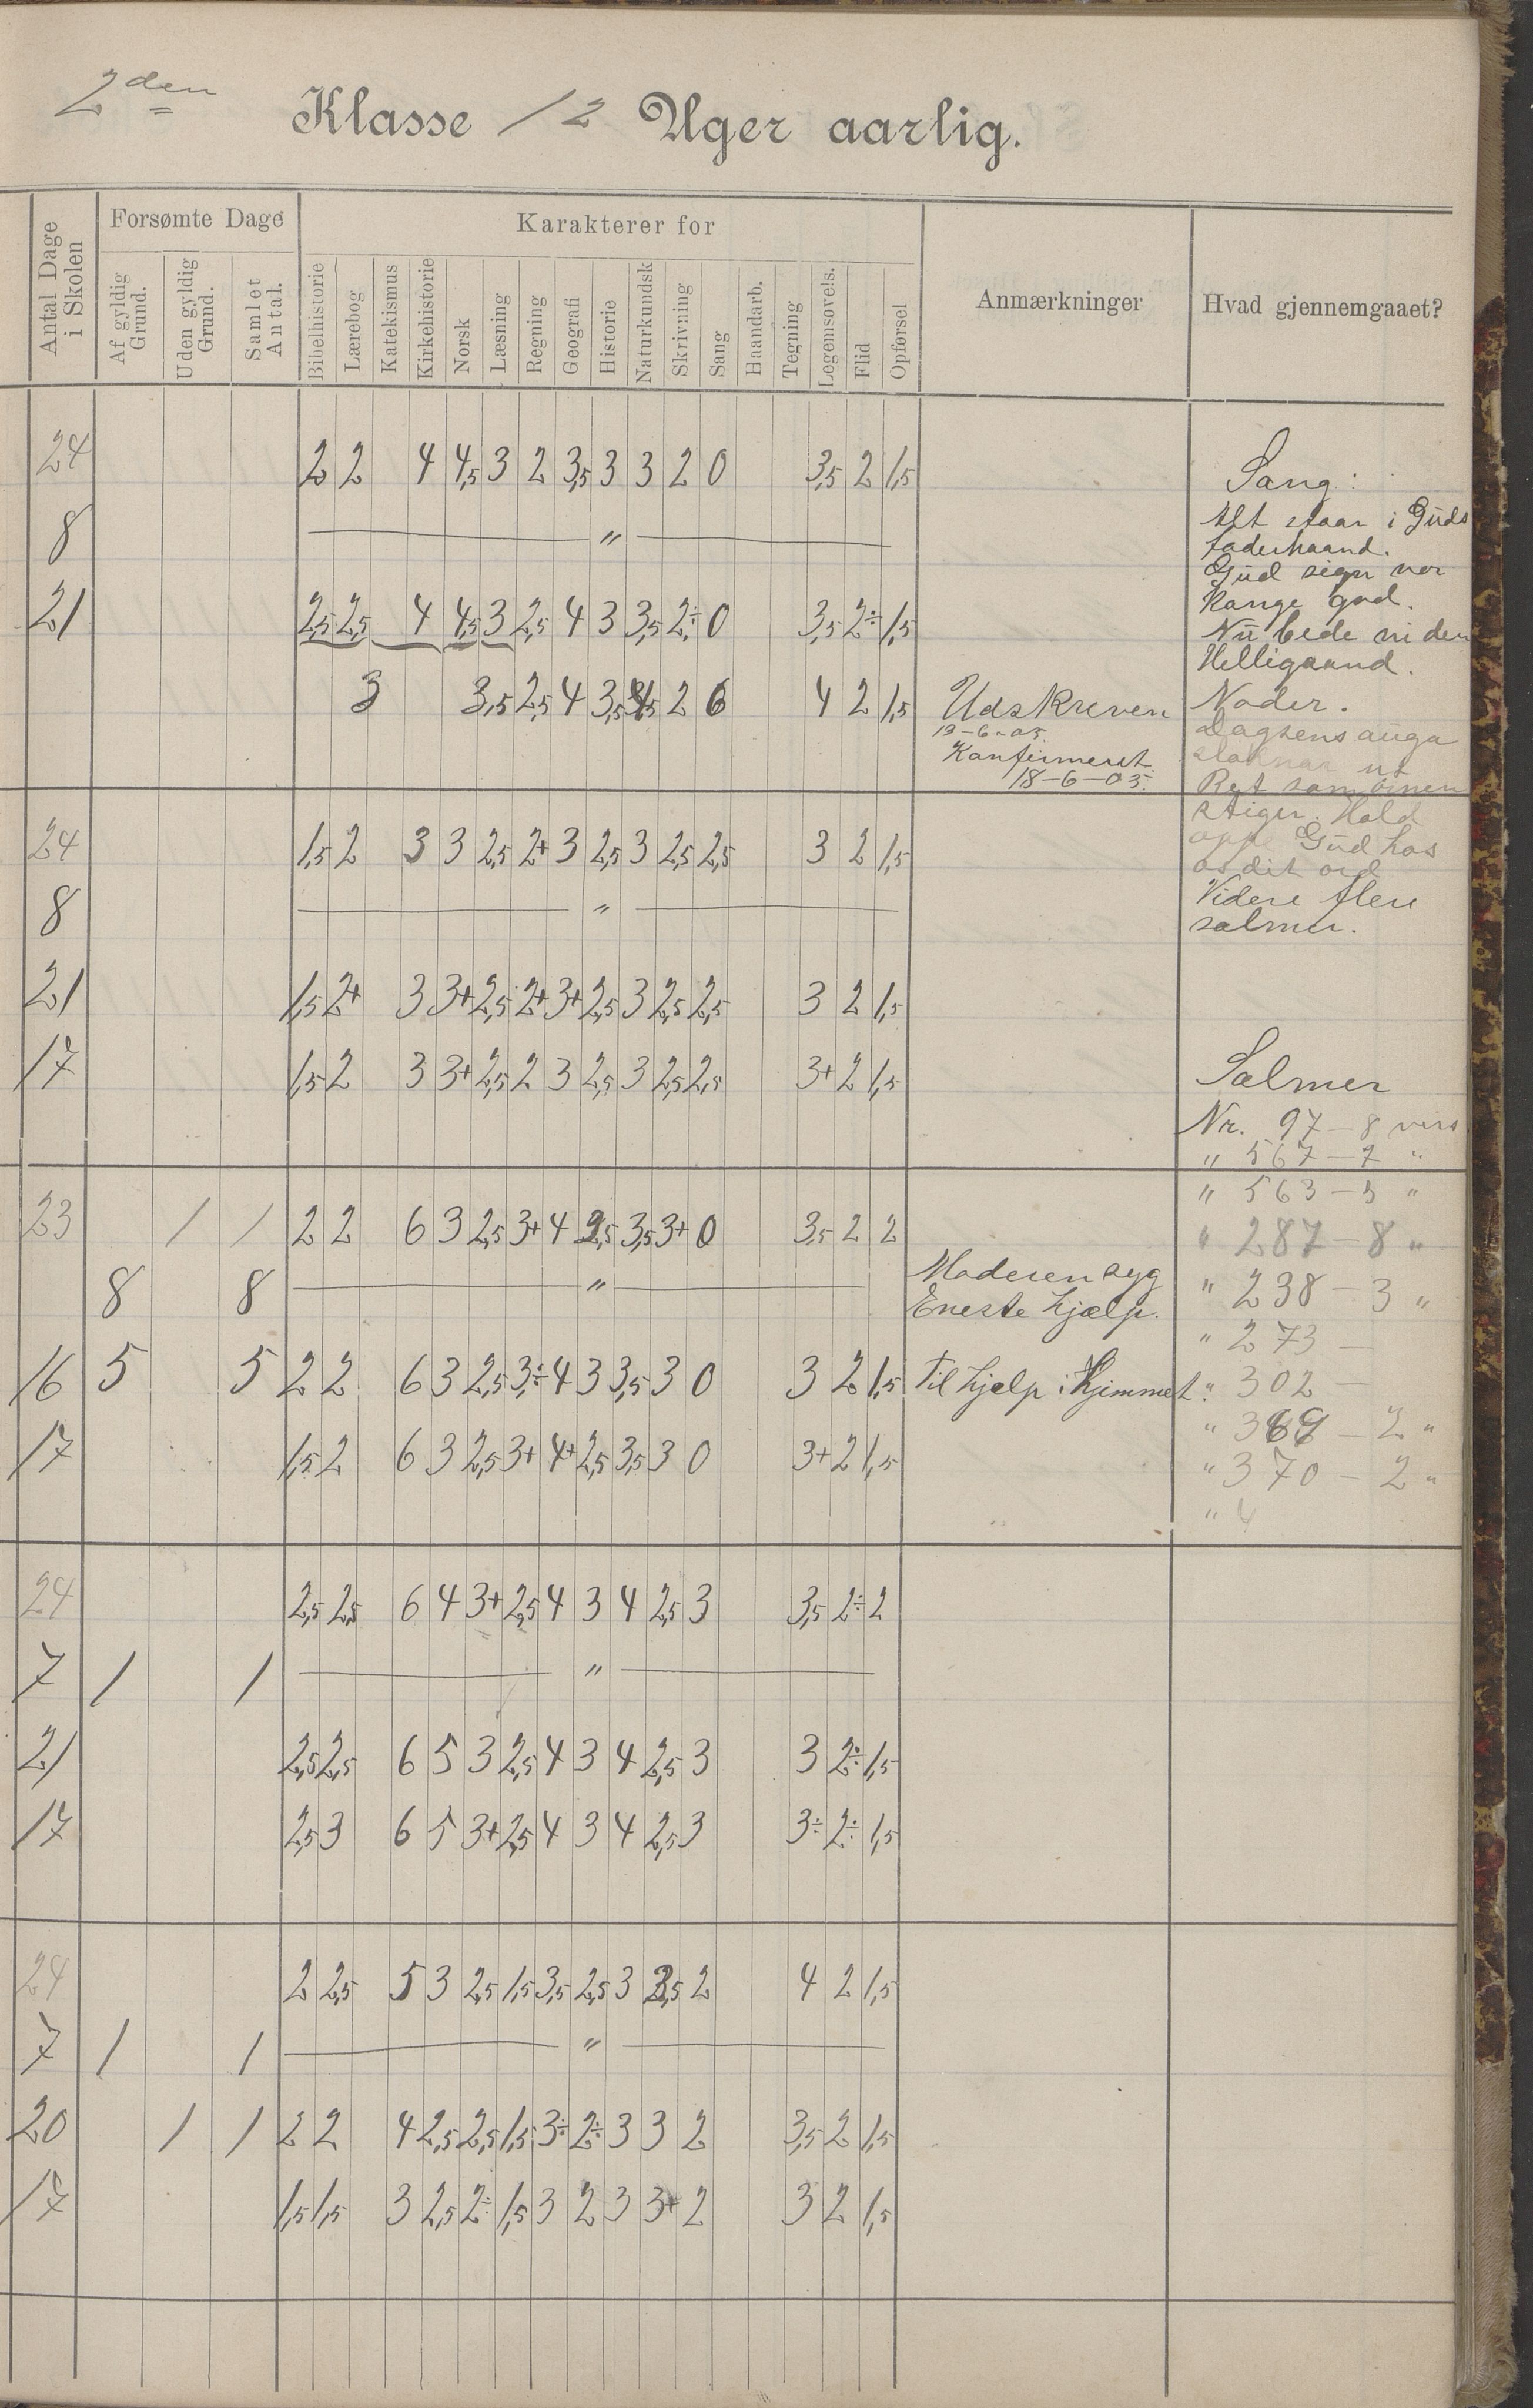 2den Klasse 12 Uger aarlig.
Antal Dage i Skolen
Forsømte Dage
Af gyldig Grund.
Uden gyldig Grund.
Samlet Antal.
Karakterer for
Bibelhistorie
Lærebog
Katekismus
Kirkehistorie
Norsk
Læsning
Regning
Geografi
Historie
Naturkundsk
Skrivning
Sang
Haandarb.
Tegning
Legemsøvels.
Flid
Opførsel
Anmærkninger
Hvad gjennemgaaet?
24 2 2 4 4,5 3 2 3,5 3 3 2 0 3,5 2 1,5
8 — " —
21 2,5 2,5 4 4,5 3 2,5 4 3 3,5 2÷ 0 3,5 2÷ 1,5
3 3,5 2,5 4 3,5 2 6 4 2 1,5
Udskreven
13-6-05.
Konfirmeret
18-6-05.
24 1,5 2 3 3 2,5 2+ 3 2,5 3 2,5 2,5 3 2 1,5
8 — " —
21 1,5 2+ 3 3+ 2,5 2+ 3+ 2,5 3 2,5 2,5 3 2 1,5
17 1,5 2 3 3+ 2,5 2 3 2,5 3 2,5 2,5 3+ 2 1,5
23 / / 2 2 6 3 2,5 3+ 4 2,5 3,5 3+ 0 3,5 2 2
8 8 — " — Moderen syg
Eneste hjælp.
16 5 5 2 2 6 3 2,5 3,÷ 4 3 3,5 3 0 3 2 1,5 Til hjælp i Hjemmet.
17 1,5 2 6 3 2,5 3+ 4+ 2,5 3,5 3 0 3+ 2 1,5
24 2,5 2,5 6 4 3+ 2,5 4 3 4 2,5 3 3,5 2÷ 2
7 / / — " —
21 2,5 2,5 6 5 3 2,5 4 3 4 2,5 3 3 2÷ 1,5
17 2,5 3 6 5 3+ 2,5 4 3 4 2,5 3 3÷ 2÷ 1,5
24 2 2,5 5 3 2,5 1,5 3,5 2,5 3 2 4 2 1,5
7 / / — " —
20 / / 2 2 4 2,5 2,5 1,5 3÷ 2÷ 3 3 2 3,5 2 1,5
17 1,5 1,5 3 2,5 2÷ 1,5 3 2 3 3+ 2 3 2 1,5
Sang:
Alt staar i Guds
faderhaand.
Gud sign vor
Konge god.
Nu bede vi den
Helligaand.
Noder.
Dagsens auga
sloknar ut
Ret som
stiger. Hold
oppe Gud hos
os dit ord
Videre flere
salmer.
Salmer
Nr. 97 - 8 vers
" 567 - 7 "
" 563 - 3 "
" 287 - 8 "
" 238 - 3 "
" 273 -
" 302 -
" 369 - 2 "
" 370 - 2 "
"